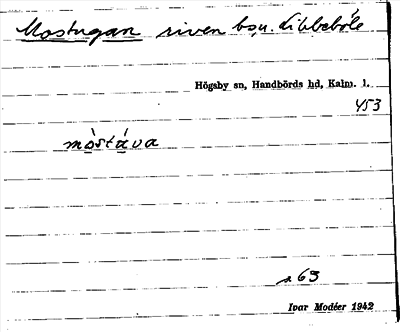 Mostugan riven bsn. Libbeböle
Högsby sn, Handbörds hd, Kalm. l.
453
mòstáva
s 69
Ivar Modéer 1942